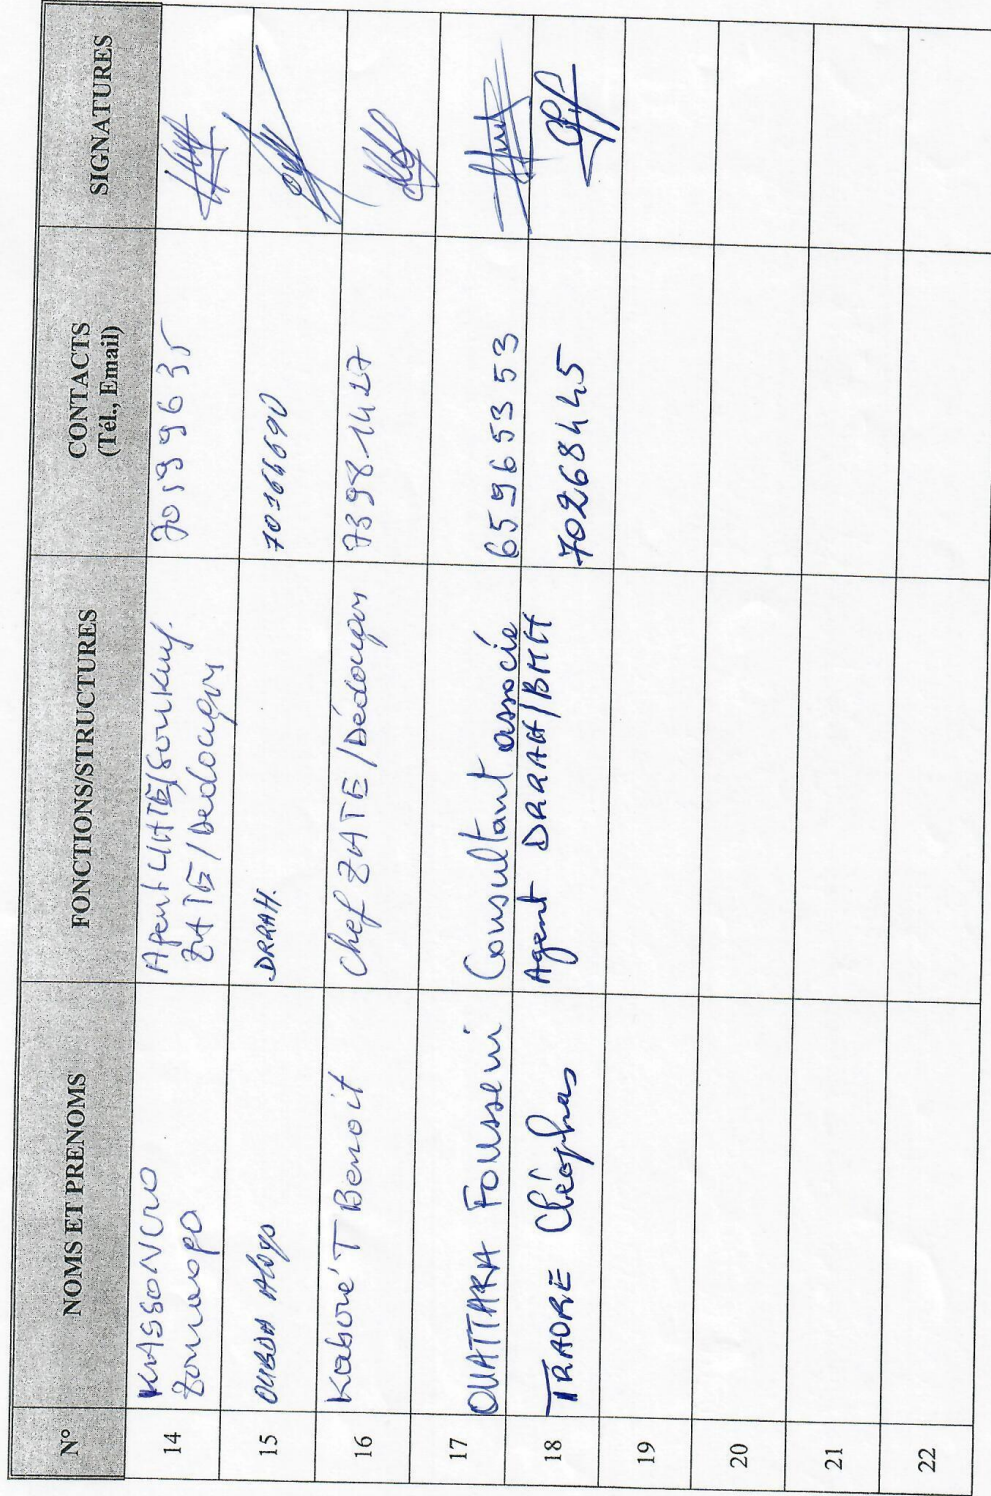 N° NOMS ET PRENOMS FONCTIONS/STRUCTURES CONTACTS SIGNATURES
(Tél., Email)
14 Agent UATE/ 70199635
ZATE/Dedougou
15 OUBDA DRAAH. 70166690
16 Kaboré T Benoit Chef ZATE/Dédougou 73981427
17 OUATTARA Fousseni Consultant associé 65965353
18 TRAORE Cléophas Agent DRAAH/BMH 70268445
19
20
21
22